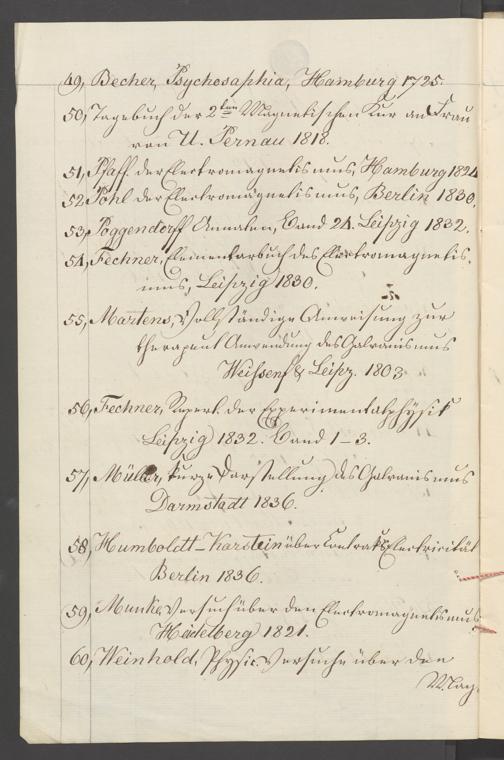 49, Becher, Psychosaphia, Hamburg 1725.
50, Tagebuch der 2ten Magnetischen Kur an Frau
von U. Pernau 1818.
51, Pfaff der Electromagnetismus, Hamburg 1824
52 Pohl der Electromagnetismus, Berlin 1830.
53, Poggendorff Annalen, Band 24. Leipzig 1832.
54, Fechner, Elementarbuch des Electromagnetis-
mus, Leipzig 1830.
55, Martens, Vollständige Anweisung zur
therapeut Anwendung des Galvanismus
Weissenf & Leipz. 1803
56, Fechner, Repert. der Experimentalphysik
Leipzig 1832. Band 1-3.
57, Müller, kurze Darstellung des Galvanismus
Darmstadt 1836.
58, Humboldt-Karstein über Electricität
Berlin 1836.
59, Munke, Versuch über den Electromagnetismus
Heidelberg 1821.
60, Weinhold, Physic. Versuche über den
Mag-